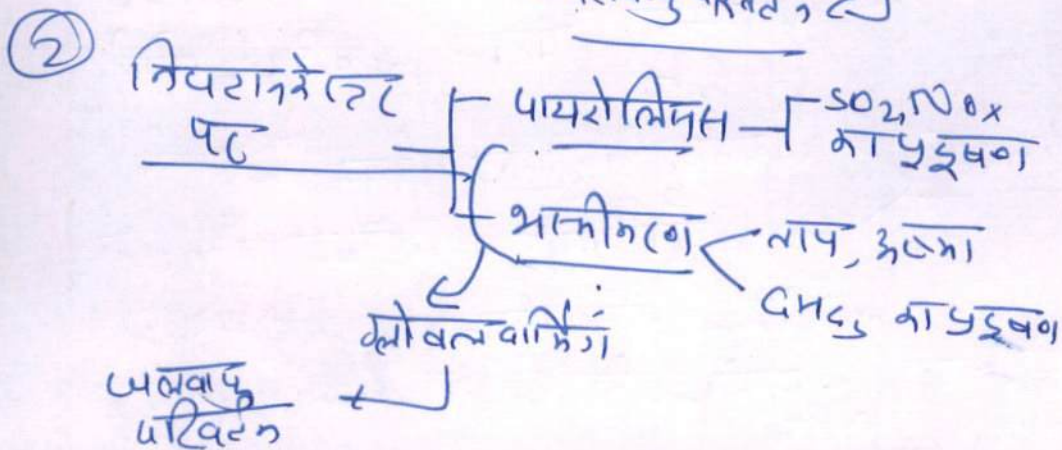 ②
निपटान के तहत
पर
पायरोलिसिस
SO₂, NOx
का प्रदूषण
भस्मीकरण
ताप, ऊष्मा
GHGs का प्रदूषण
ग्लोबल वार्मिंग
जलवायु
परिवर्तन